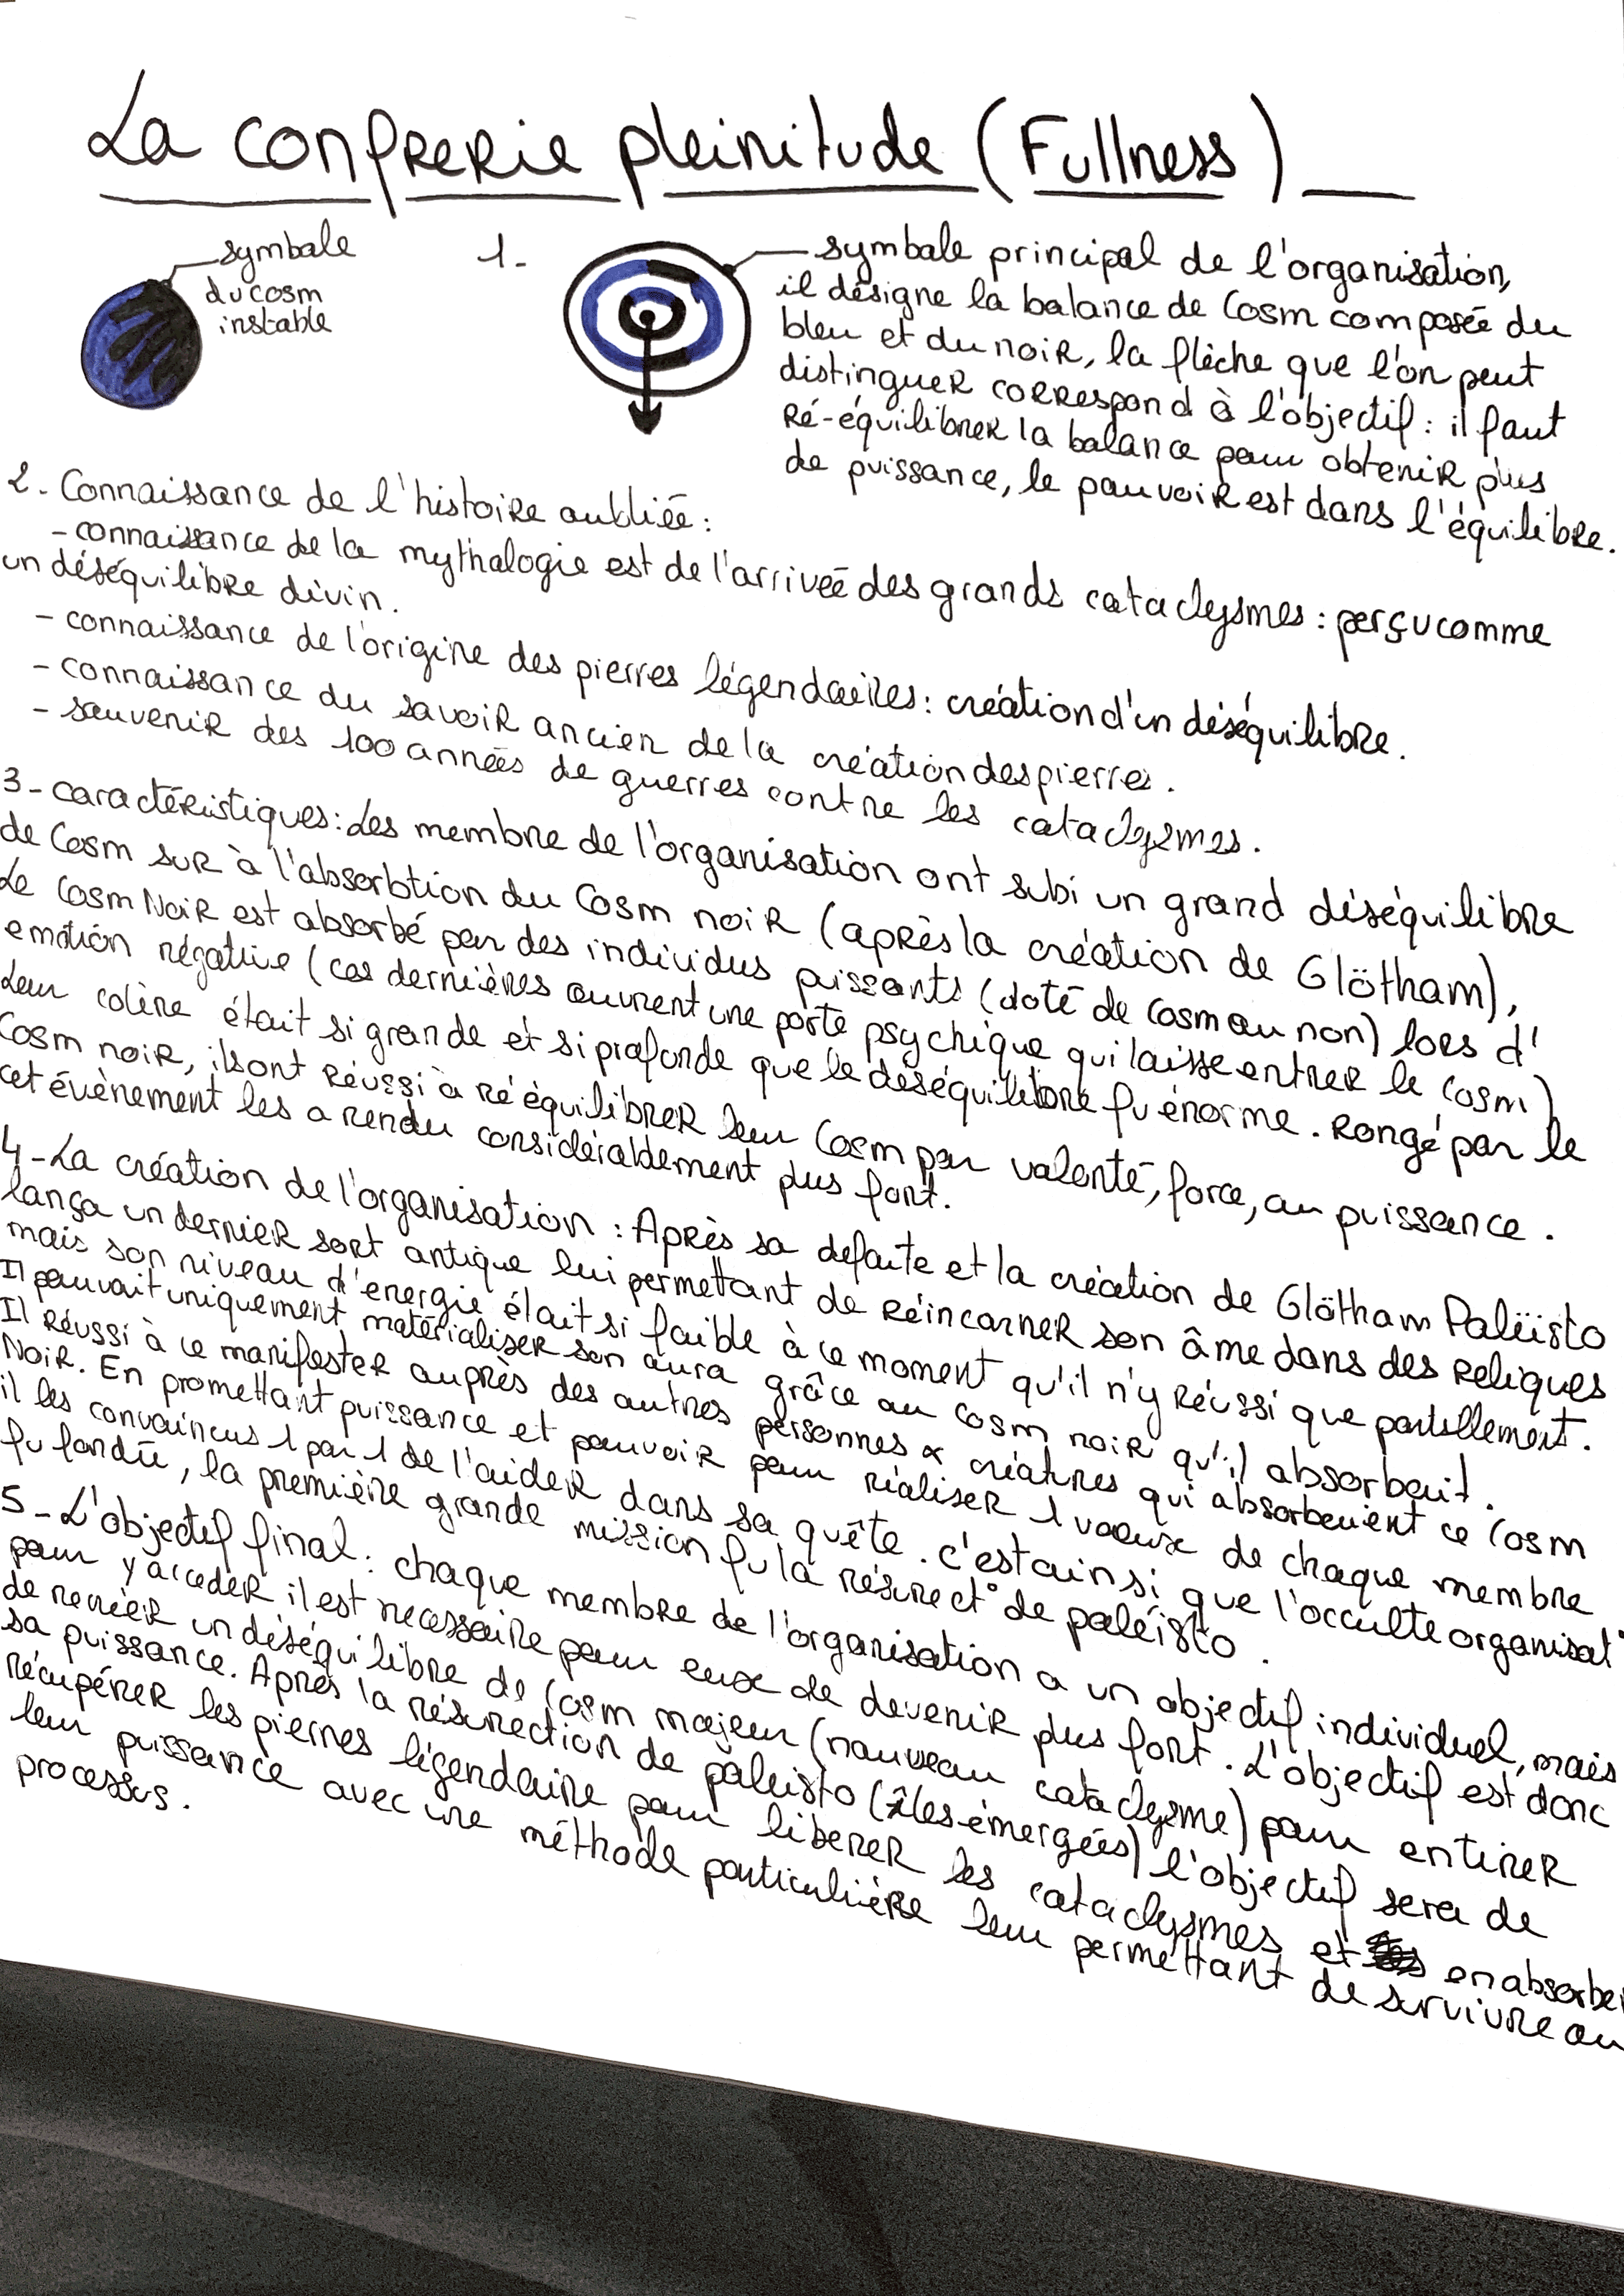 La confrerie pleinitude (Fullness)
symbole
du cosm
instable
1-
symbole principal de l'organisation,
il désigne la balance de Cosm composée du
bleu et du noir, la flèche que l'on peut
distinguer correspond à l'objectif : il faut
Ré-équilibrer la balance pour obtenir plus
de puissance, le pouvoir est dans l'équilibre.
2- Connaissance de l'histoire oubliée :
- connaissance de la mythologie est de l'arriveé des grands cataclysmes : perçu comme
un déséquilibre divin.
- connaissance de l'origine des pierres légendaires : création d'un déséquilibre.
- connaissance du savoir ancien de la création des pierres.
- souvenir des 100 années de guerres contre les cataclysmes.
3- caractéristiques : Les membre de l'organisation ont subi un grand déséquilibre
de Cosm sur à l'absorbtion du Cosm noir (après la création de Glötham),
Le Cosm Noir est absorbé par des individus puissants (doté de Cosm ou non) lors d'
emotion négative (ces dernières ouvrent une porte psychique qui laisse entrer le Cosm)
Leur colère était si grande et si profonde que le déséquilibre fu énorme. Rongé par le
Cosm noir, ils ont Réussi à Rééquilibrer leur Cosm par volonté, force, ou puissance.
cet évènement les a rendu considéraldement plus fort.
4- La création de l'organisation : Après sa defaite et la création de Glötham Paléïsto
lança un dernier sort antique lui permettant de Réincarner son âme dans des Reliques
mais son niveau d'energie était si faible à ce moment qu'il n'y Réussi que partiellement.
Il pouvait uniquement matérialiser son aura grâce au Cosm noir qu'il absorbait.
Il Réussi à ce manifester auprès des autres personnes & créatures qui absorbaient ce Cosm
Noir. En promettant puissance et pouvoir pour réaliser 1 voeux de chaque membre
il les convaincus 1 par 1 de l'aider dans sa quête. c'est ainsi que l'occulte organisat°
fu fondée, la première grande mission fu la résurect° de paléïsto.
5- L'objectif final : chaque membre de l'organisation a un objectif individuel, mais
pour y acceder il est necessaire pour eux de devenir plus fort. L'objectif est donc
de recréer un déséquilibre de Cosm majeur (nouveau cataclysme) pour entirer
sa puissance. Après la résurection de paleïsto (îles-émergées) l'objectif sera de
récupérer les pierres légendaire pour liberer les cataclysmes et en absorber
leur puissance avec une méthode particulière leur permettant de survivre au
processus.